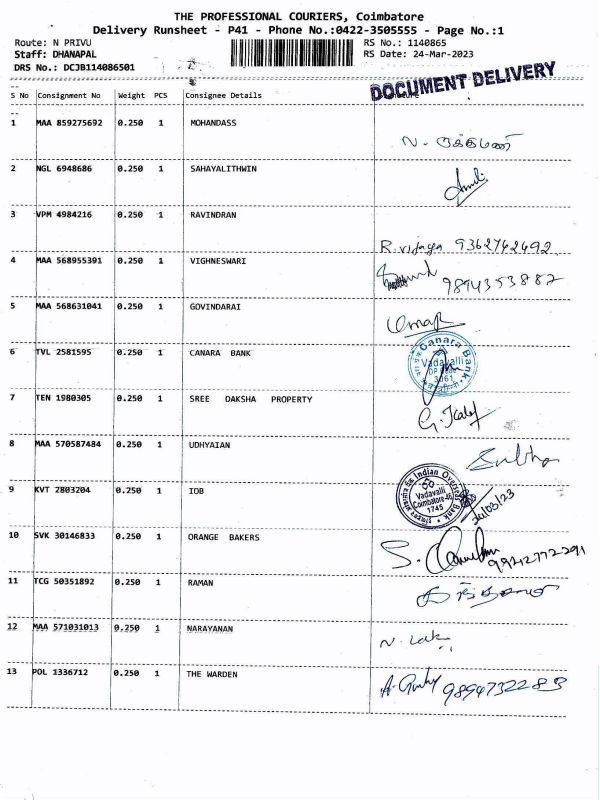 THE PROFESSIONAL COURIERS, Coimbatore
Delivery Runsheet - P41 - Phone No.:0422-3505555 - Page No.:1
Route: N PRIVU RS No.: 1140865
Staff: DHANAPAL RS Date: 24-Mar-2023
DRS No.: DCJB114086501
DOCUMENT DELIVERY
S No Consignment No Weight PCS Consignee Details
1 MAA 859275692 0.250 1 MOHANDASS
2 NGL 6948686 0.250 1 SAHAYALITHWIN
3 VPM 4984216 0.250 1 RAVINDRAN
R. vijaya 9362742692
4 MAA 568955391 0.250 1 VIGHNESWARI
9894353882
5 MAA 568631041 0.250 1 GOVINDARAI
6 TVL 2581595 0.250 1 CANARA BANK
Canara Bank
Vadavalli
7 TEN 1980305 0.250 1 SREE DAKSHA PROPERTY
8 MAA 570587484 0.250 1 UDHYAIAN
9 KVT 2803204 0.250 1 IOB
Indian Overseas Bank
Vadavalli
Coimbatore-46
1745
10 SVK 30146833 0.250 1 ORANGE BAKERS
11 TCG 50351892 0.250 1 RAMAN
12 MAA 571031013 0.250 1 NARAYANAN
13 POL 1336712 0.250 1 THE WARDEN
9894732283